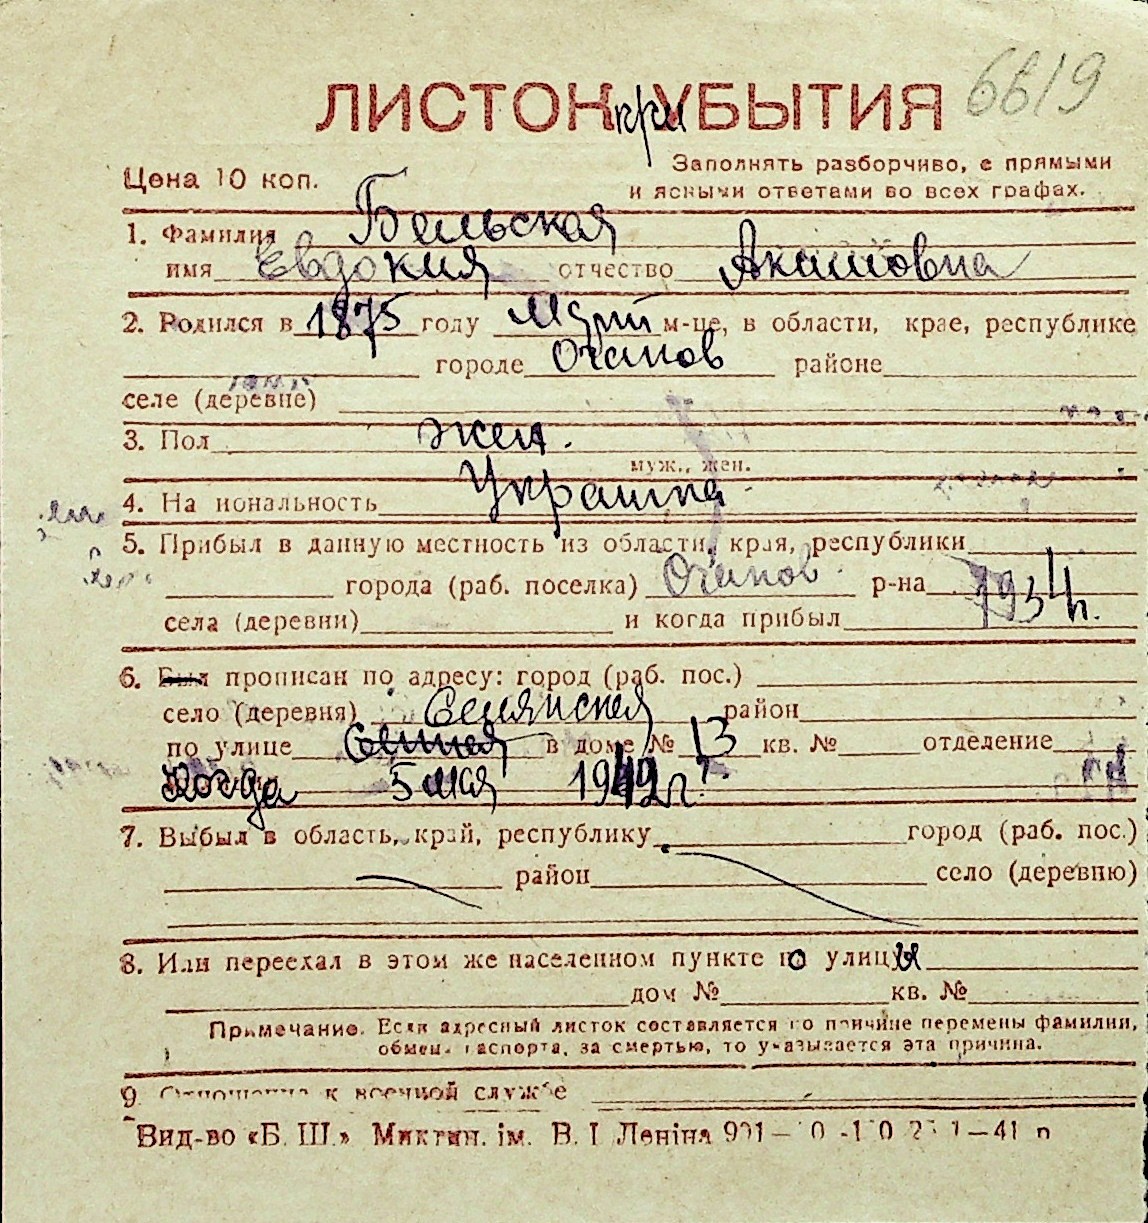 6619
ЛИСТОК при УБЫТИЯ
Заполнять разборчиво, с прямыми
Цена 10 коп. и ясными ответами во всех графах.
1. Фамилия Бельская
имя Евдокия отчество
2. Родился в 1875 году м-це, в области, крае, республике
городе Очаков районе
селе (деревне)
3. Пол жен.
муж., жен.
4. На иональность Украинка
5. Прибыл в данную местность из области, края, республики
города (раб. поселка) Очаков р-на
села (деревни) и когда прибыл 1934 г.
6. Был прописан по адресу: город (раб. пос.)
село (деревня) район
по улице в доме № 13 кв. № отделение
когда 5 мая 1942 г.
7. Выбыл в область, край, республику город (раб. пос.)
район село (деревню)
8. Или переехал в этом же населенном пункте по улицы
дом № кв. №
Примечание. Если адресный листок составляется по причине перемены фамилии,
обмена паспорта, за смертью, то указывается эта причина.
9. Отношение к военной службе
Вид-во «Б. Ш.» Микган. ім. В. І Леніна